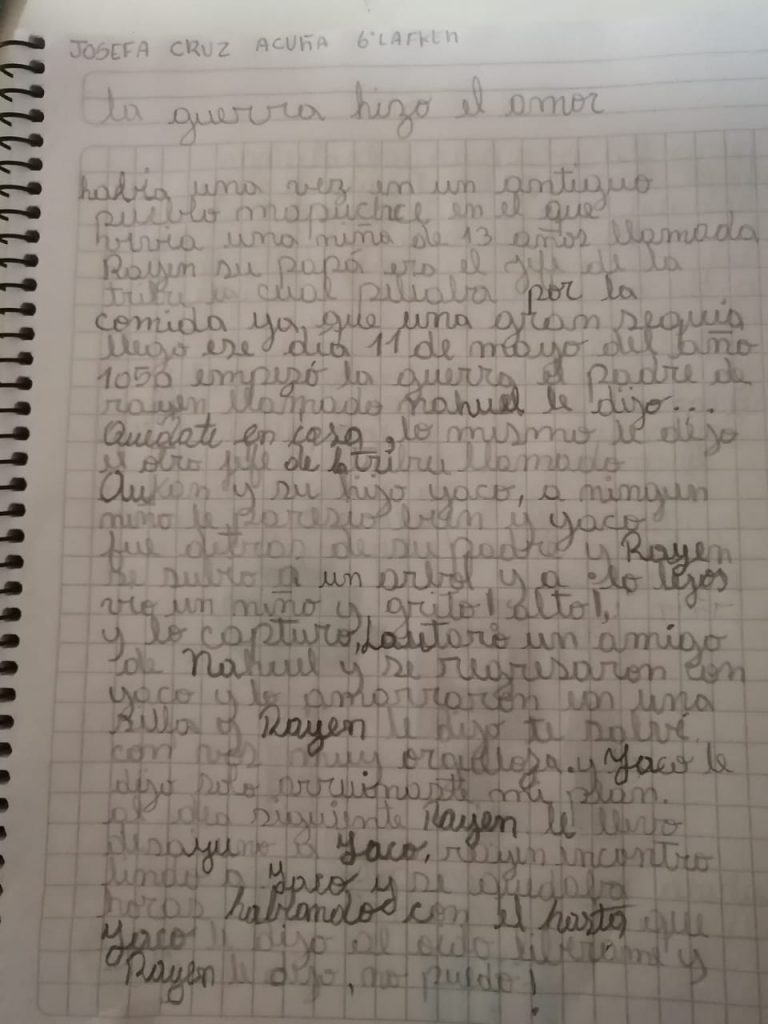 JOSEFA CRUZ ACUÑA 6°LAFKEN
la guerra hizo el amor
habia una vez en un antiguo
pueblo mapuchce en el que
vivia una niña de 13 años llamada
Rayen su papá era el jefe de la
tribu la cual peliaba por la
comida ya que una gran sequia
llego ese dia 11 de mayo del año
1050 empezó la guerra el padre de
rayen llamado nahuel le dijo...
Quedate en casa, lo mismo le dijo
el otro jefe de tribu llamado
Aukan y su hijo yaco, a ningun
niño le paresio bien y yaco
fue detras de su padre y Rayen
se subio a un arbol y a lo lejos
vio un niño y grito! alto!,
y lo capturo, Lautaro un amigo
de Nahuel y se regresaron con
yaco y lo amarraron en una
silla y Rayen le dijo te salvé
con vos muy orgullosa. y Yaco le
dijo solo arruinaste mi plan.
al dia siguiente Rayen le llevo
desayuno a Yaco, rayen encontro
lindo a Yaco y se quedaba
horas hablando con el hasta que
Yaco le dijo al oido liberame y
Rayen le dijo, no puedo!